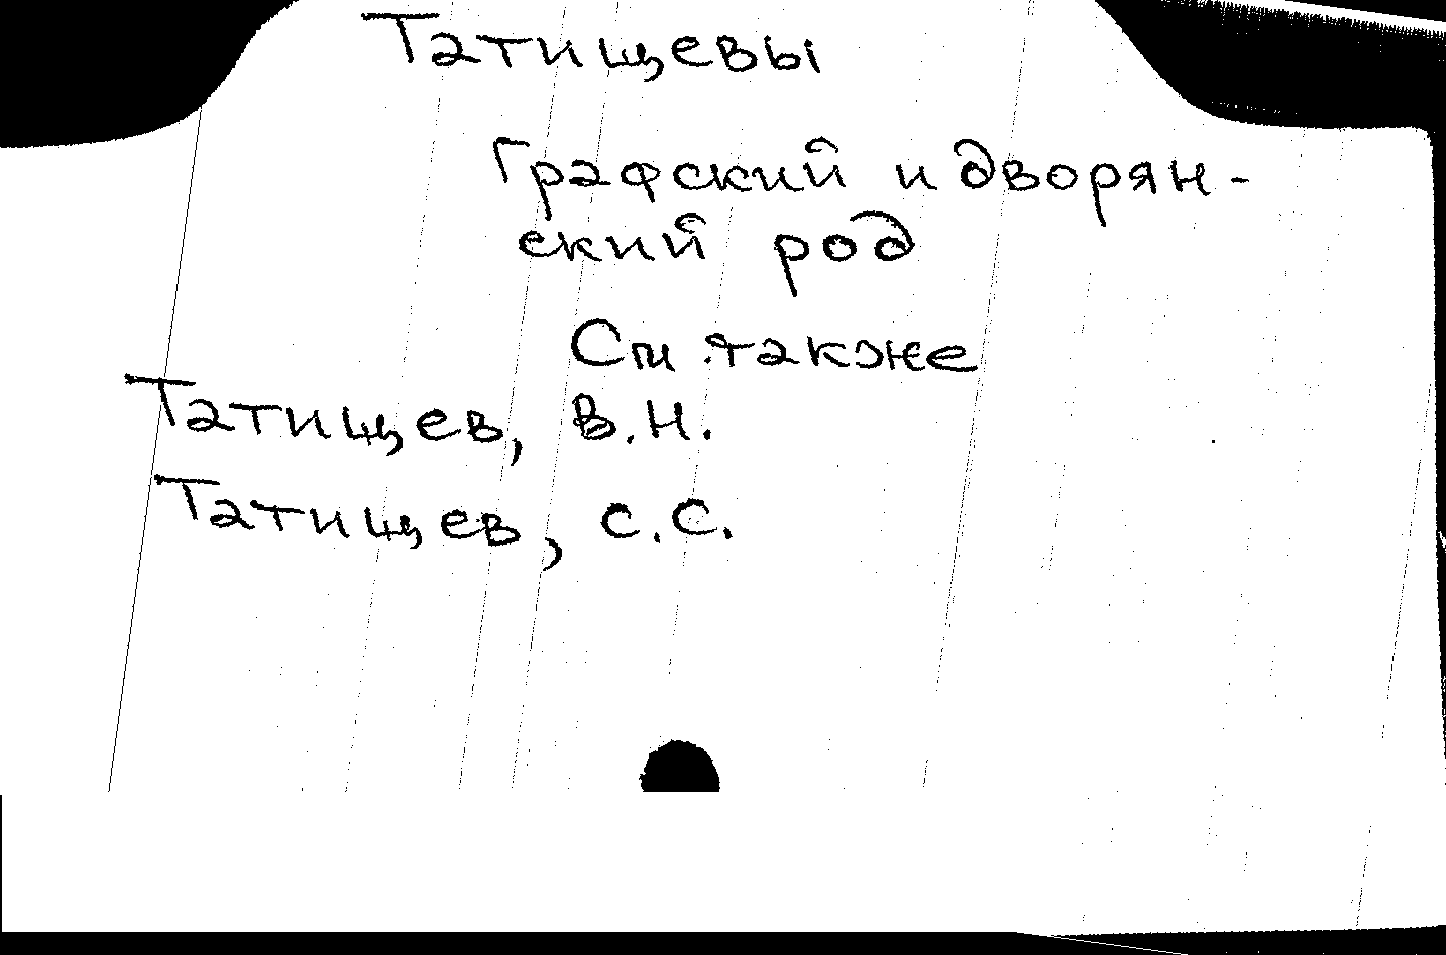 Татищевы
Графский и дворян-
ский род
См. также
Татищев, В.Н.
Татищев, С.С.